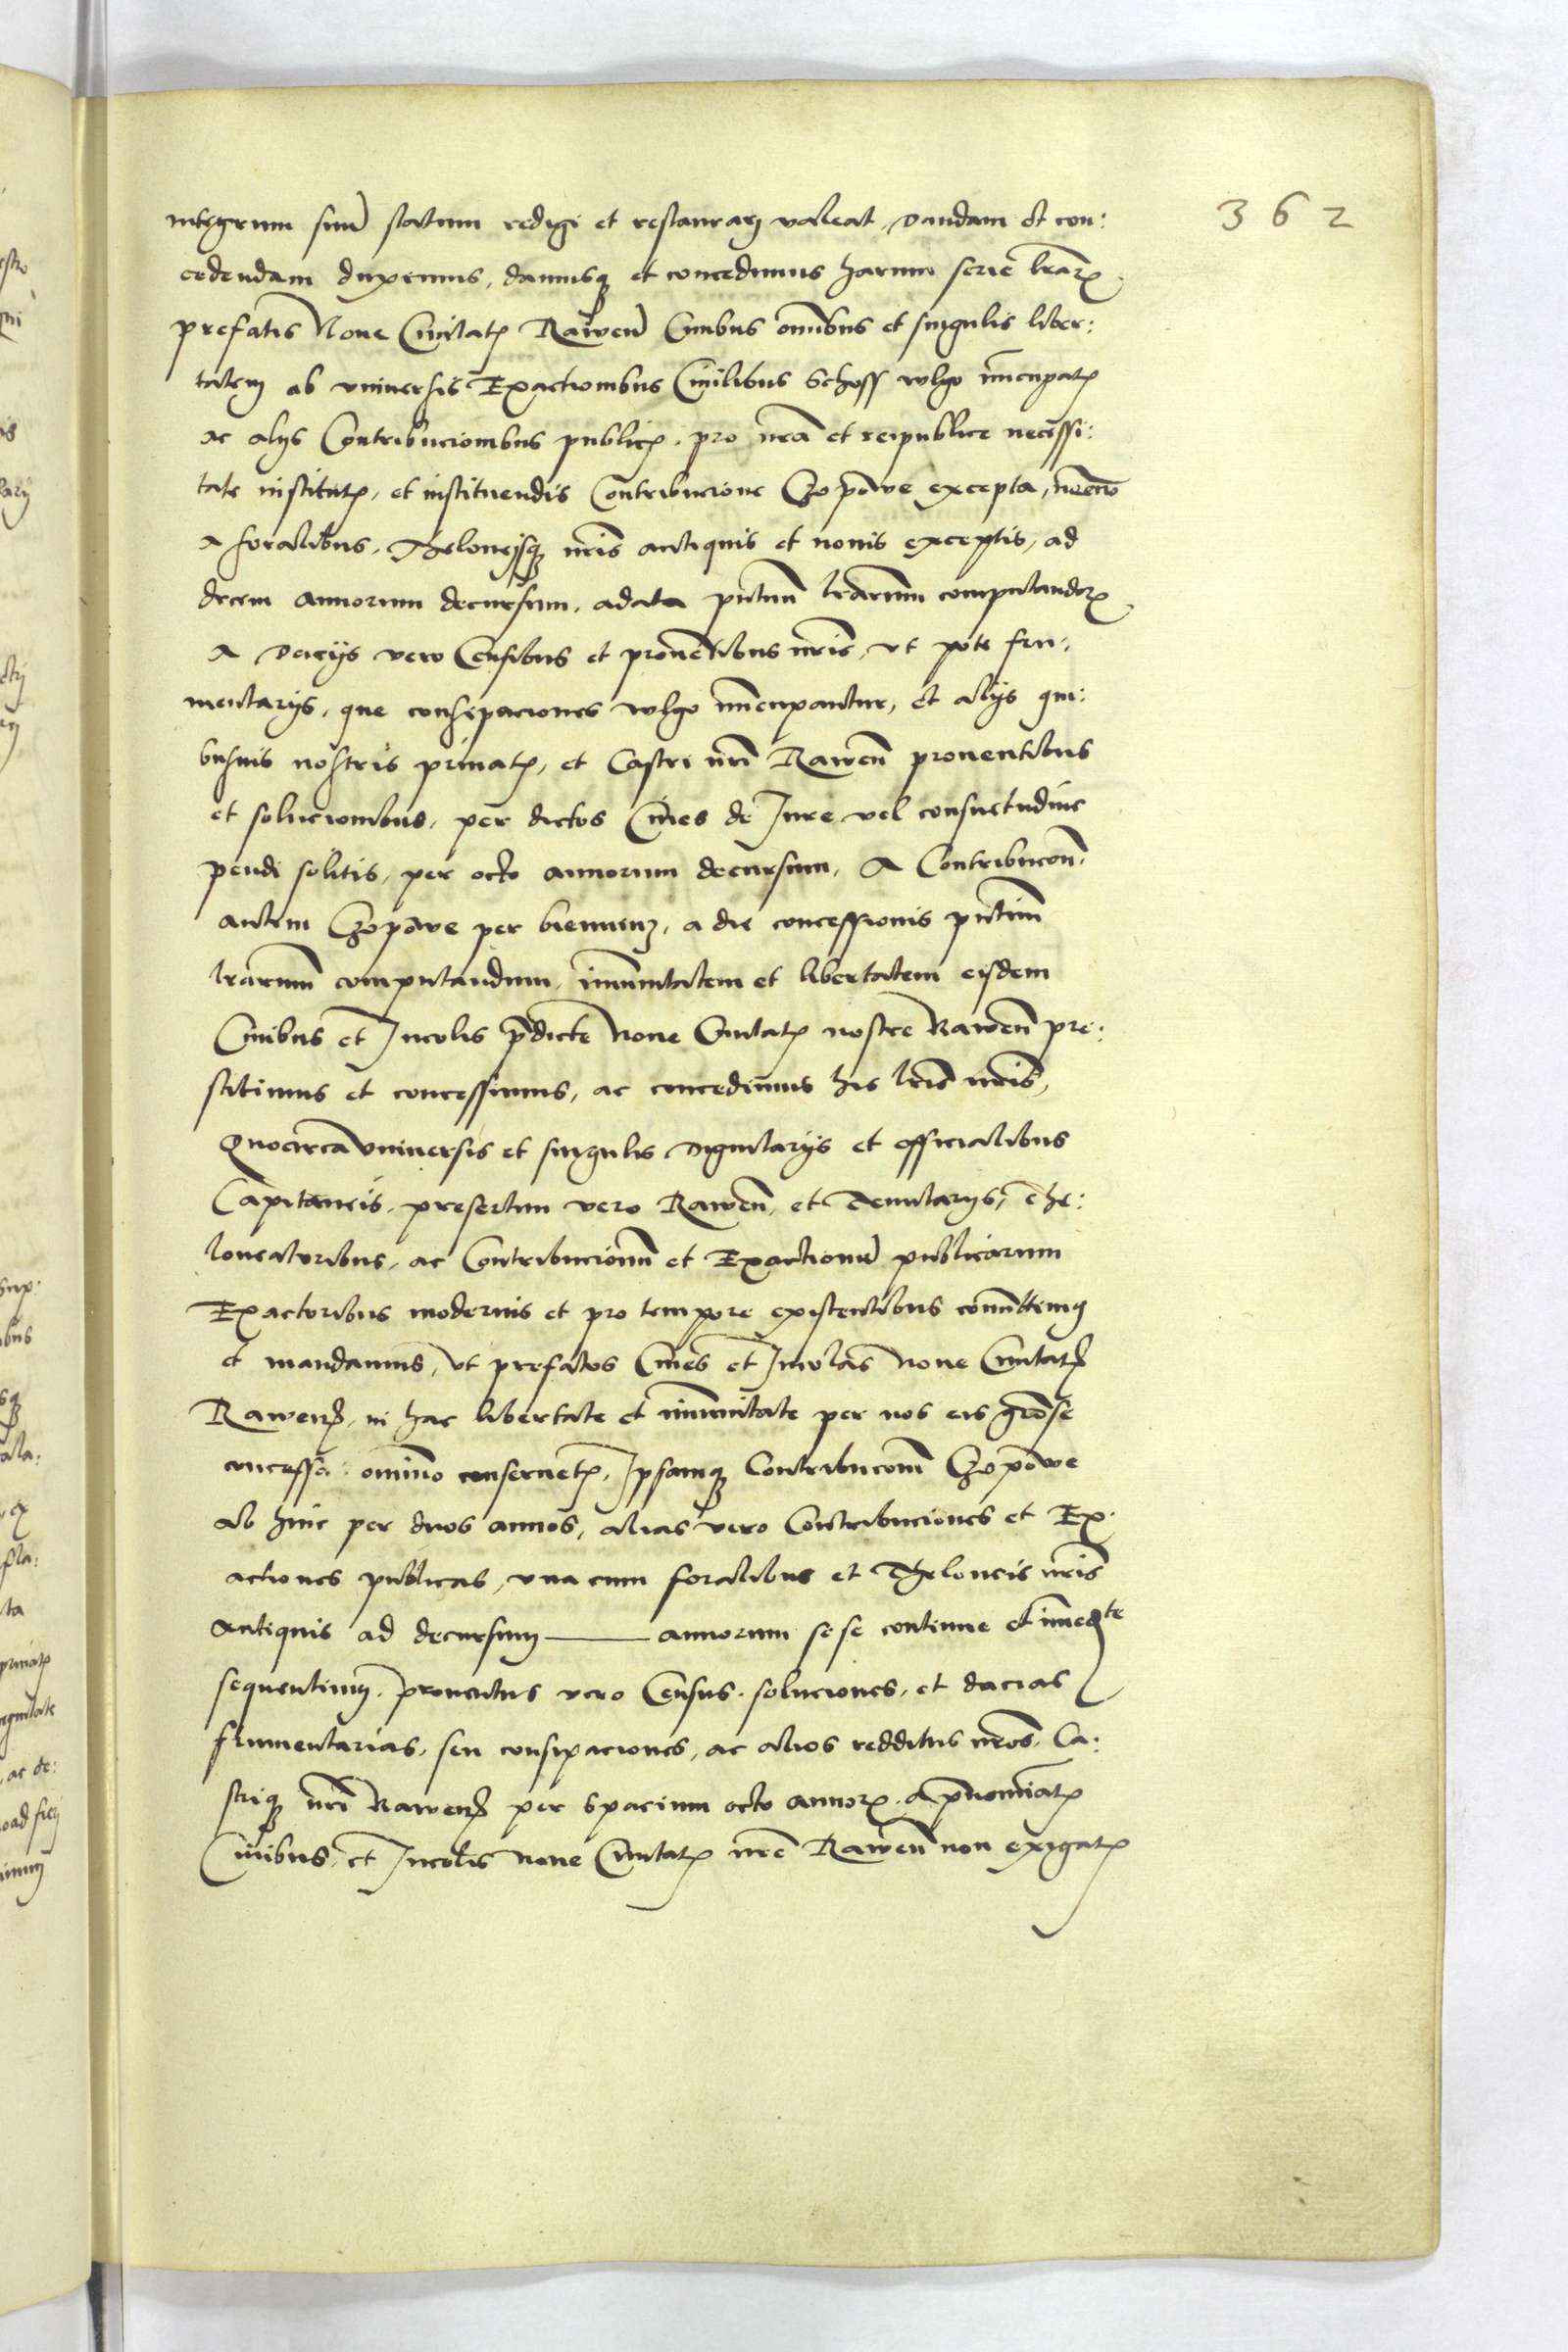 362
integrum suu͞ statum redigi et restaurarj valeat, dandam et con:
cedendam duximus, damusq; et concedimus harum serie l͞raꝝ
prefatis Noue Ciuitatꝭ Rawen͞ Ciuibus om͞ibus et singulis liber:
tatem ab vniuersis Exactionibus Ciuilibus Schoss wlgo nu͞cupatꝭ
ac alijs Contribucionibus publicꝭ, pro n͞ra et reipublice necessi:
tate institutꝭ, et instituendis Contribucione Czopowe excepta, necno͞
a foralibus, Theloneisq; n͞ris antiquis et nouis exceptis, ad
decem annorum decursum, a data pn͞tium l͞rarum computandoꝝ
A dacijs vero Censibus et prouentibus n͞ris, vt pote fru:
mentarijs, que consepaciones wlgo nu͞cupantur, et alijs qui:
busuis nostris priuatꝭ, et Castri n͞ri Rawen͞ prouentibus
et solucionibus, per dictos Ciues de Iure vel consuetudine
pendi solitis, per octo annorum decursum, A Contribucion͞
autem Czopowe per bienniu͞, a die concessionis pn͞tium
l͞rarum computandum, im͞unitatem et libertatem eisdem
Ciuibus et Incolis p͞dicte Noue Ciuitatꝭ nostre Rawen͞ pre:
stitimus et concessimus, ac concedimus his l͞ris n͞ris,
Quocirca Vniuersis et singulis Dignitarijs et officialibus
Capitaneis, presertim vero Rawen͞, et Tenutarijs, The:
loneatoribus, ac Contribucionu͞ et Exactionu͞ publicarum
Exactoribus modernis et pro tempore existentibus com͞ittimꝰ
et mandamus, vt prefatos Ciues et Incolas noue Ciuitatꝭ
Rawenꝭ, in hac libertate et im͞unitate per nos eis gr͞ose
concessa omnino conseruetꝭ, Ipsamq; Contribucion͞ Czopowe
ab hinc per duos annos, alias vero Contribuciones et Ex:
actiones publicas, vna cum foralibus et Theloneis n͞ris
antiquis ad decursum —— annorum sese continue et im͞ed͞te
sequentium, prouentus vero Census, soluciones, et dacias
frumentarias, seu consepaciones, ac alios redditus n͞ros, Ca:
striq; n͞ri Rawenꝭ per spacium octo annoꝝ, a p͞nominatꝭ
Ciuibus, et Incolis noue Ciuitatꝭ n͞re Rawen͞ non exigatꝭ